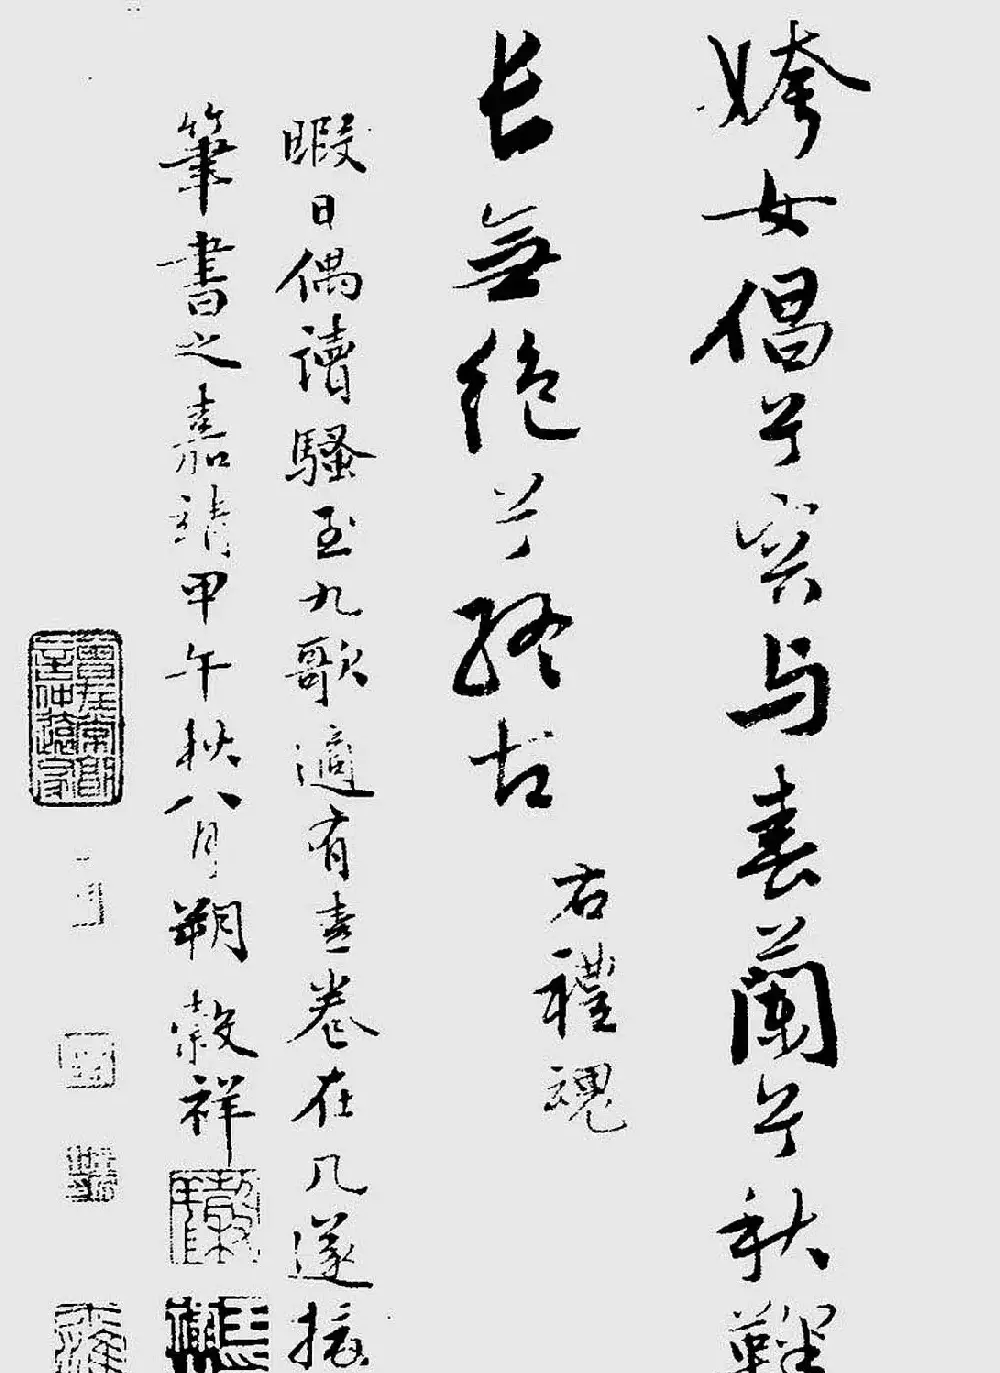 姱女倡兮容与春蘭兮秋鞠
长無絶兮終古
右禮魂
暇日偶讀騷至九歌適有素卷在几遂援
筆書之嘉靖甲午秋八月朔穀祥